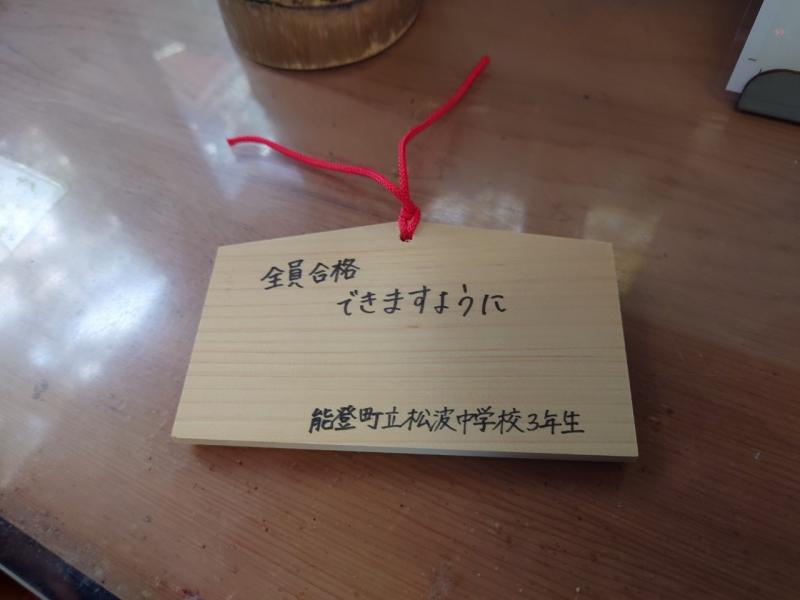 全員合格
できますように
能登町立松波中学校3年生